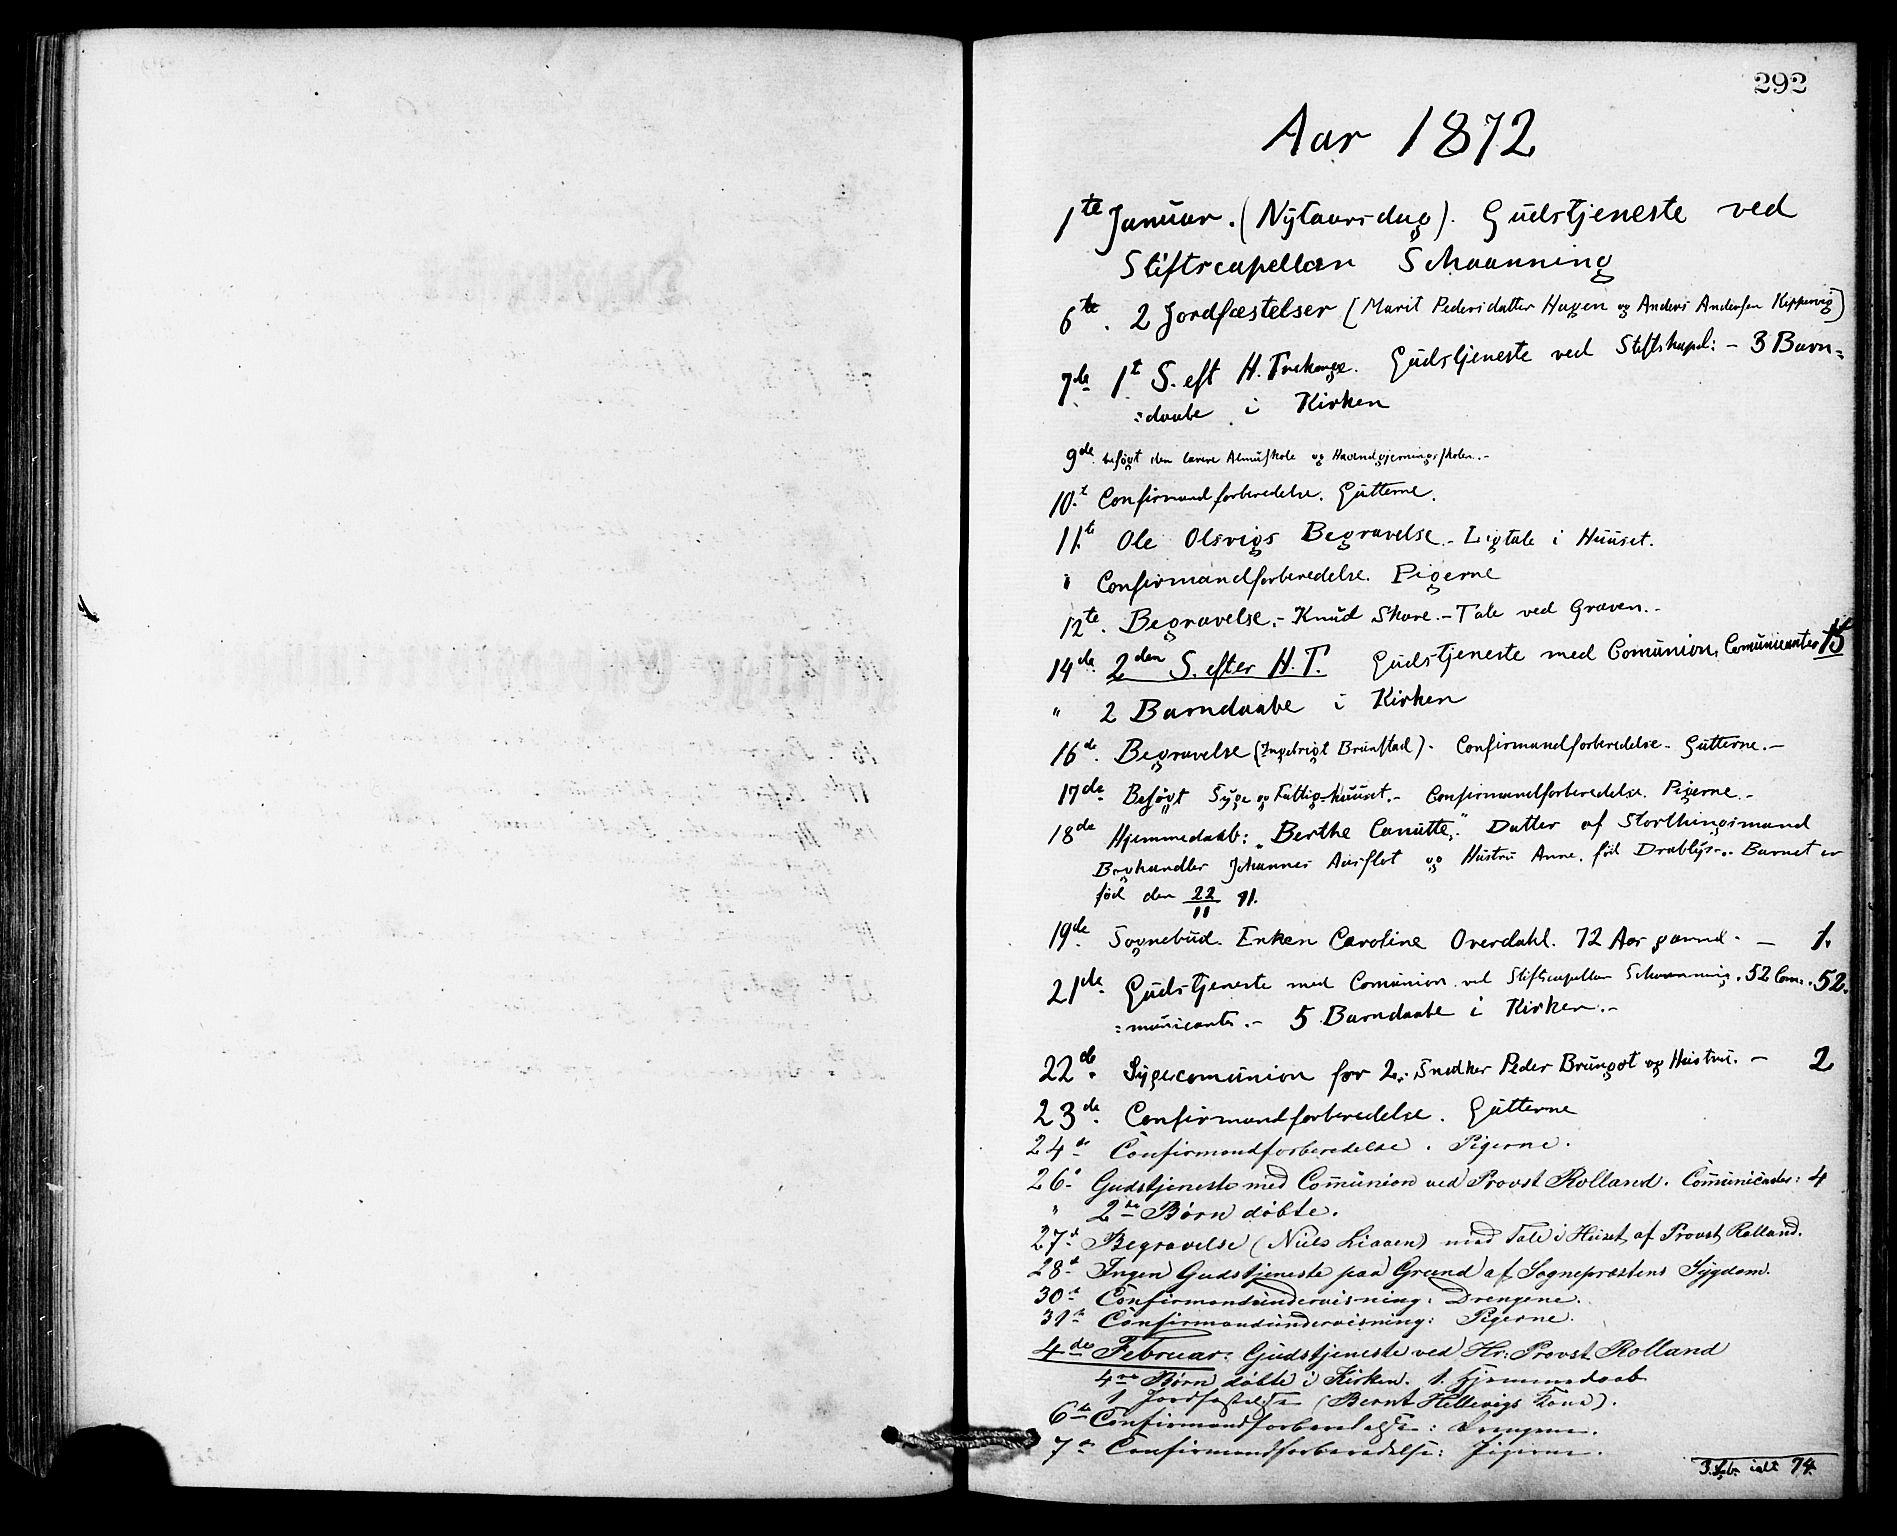 292
Aar 1872
1te Januar. (Nytaarsdag). Gudstjeneste ved
Stiftscapellan Schaanning
6te. 2 Jordfæstelser (Marit Pedersdatter Hagen og Anders Andersen Kippervig)
7de 1t S. eft H. Trekonge. Gudstjeneste ved Stiftskapel: - 3 Barn=
=daabe i Kirken
9de besøgt den lavere Almuskole og Haandgjerningsskolen.-
10.t Confirmandforberedelse. Gutterne.
11te Ole Olsvigs Begravelse.- Ligtale i Huuset.
" Confirmandforberedelse. Pigerne
12te. Begravelse.- Knud Skare.- Tale ved Graven.-
14de 2den S. efter H. T. Gudstjeneste med Comunion, Comunicanter 15
" 2 Barndaabe i Kirken
16de. Begravelse (Ingebrigt Brunstad). Confirmandforberedelse - Gutterne.-
17de Besøgt Syge og Fattig-huuset.- Confirmandforberedelse. Pigerne.-
18de Hjemmedaab: "Berthe Canutte," Datter af Storthingsmand
Boghandler Johannes Aarflot og Hustru Anne, fød Drabløs-. Barnet er
fød den 22/11 71.
19de Sognebud. Enken Caroline Overdahl. 72 Aar gammel. - 1.
21de Gudstjeneste med Comunion ved Stiftscapellan Schaanning. 52 Com=. 52.
=municanter.- 5 Barndaabe i Kirken.-
22de. Sygecomunion for 2.: Snedker Peder Brungot og Hustru. - 2
23de. Confirmandforberedelse. Gutterne
24de Confirmandforberedelse. Pigerne.
26. Gudstjeneste med Comunion ved Provst Rolland. Comunicanter: 4
" 2de Børn døbte.
27de Begravelse (Niels Liaaen) med Tale i Huset af Provst Rolland.
28de Ingen Gudstjeneste paa Grund af Sognepræstens Sygdom.
30te Confirmandundervisning: Drengene.
31te Confirmandundervisning: Pigerne.
4de Februar: Gudstjeneste ved Hr: Provst Rolland
4re Børn døbte i Kirken. 1. Hjemmedaab
1 Jordfæstelse (Bernt Hellevigs Kone).
6te Confirmandforberedelse: Drengene.
7de Confirmandforberedelse: Pigerne.
ialt 74.